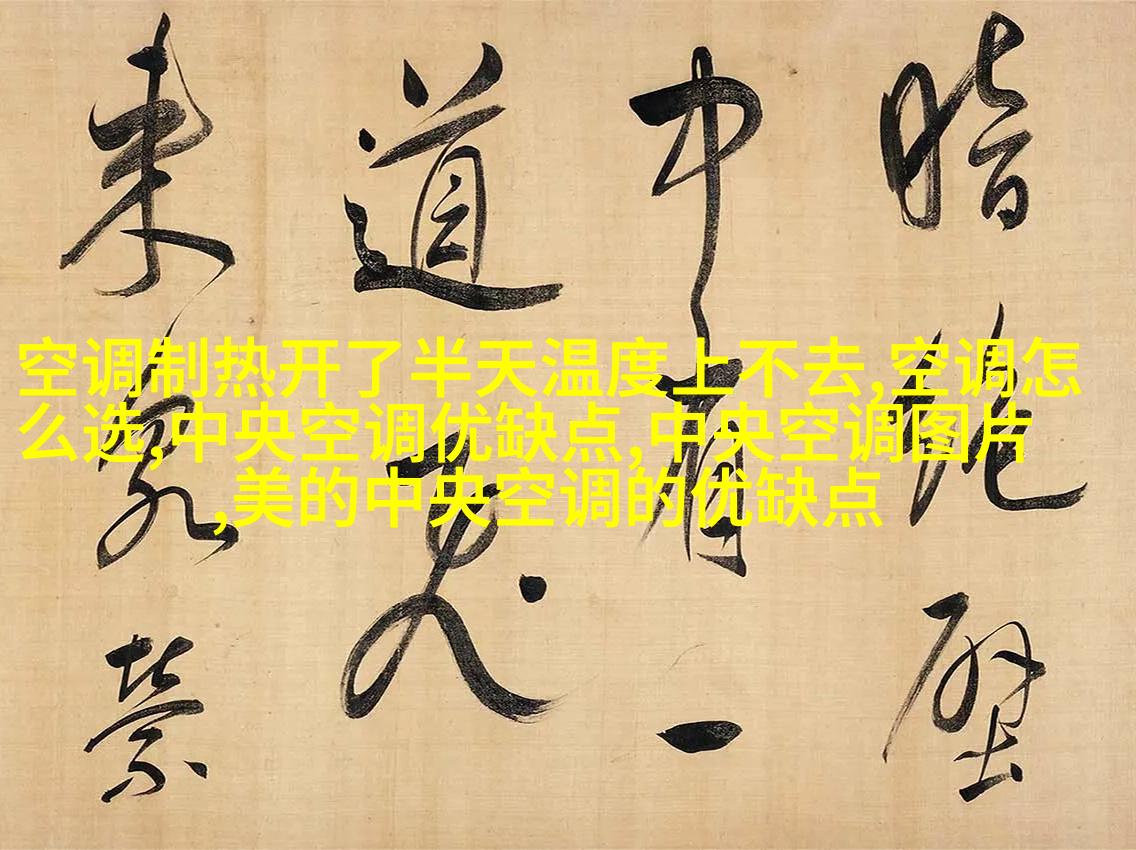 空调制热开了半天温度上不去,空调怎
么选,中央空调优缺点,中央空调图片
,美的中央空调的优缺点
暗絶壁
中有一
道
来